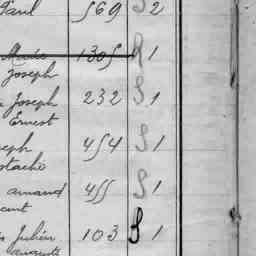 Paul 569 S 2
Marie 1305 S 1
Joseph
Joseph 232 S 1
Ernest
seph 454 S 1
stache
amand 455 S 1
Julien 103 S 1